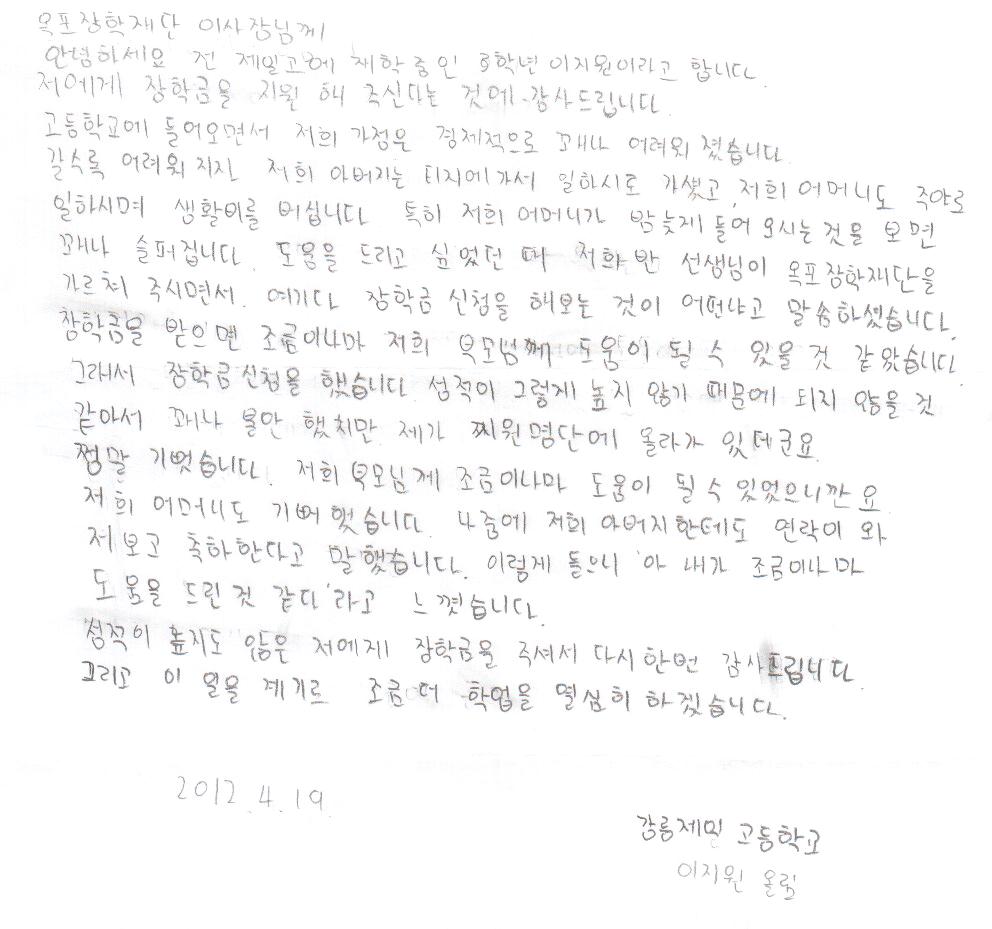 옥포장학재단 이사장님께
안녕하세요 전 제일고에 재학중인 3학년 이지원이라고 합니다.
저에게 장학금을 지원 해 주신다는 것에 감사드립니다.
고등학교에 들어오면서 저희 가정은 경제적으로 꽤나 어려워 졌습니다.
갈수록 어려워 지자 저희 아버지는 타지에 가서 일하시로 가셨고, 저희 어머니도 주야로
일하시며 생활비를 버십니다. 특히 저희 어머니가 밤늦게 들어 오시는 것을 보면
꽤나 슬퍼집니다. 도움을 드리고 싶었던 때 저희 반 선생님이 옥포장학재단을
가르쳐 주시면서. 여기다 장학금 신청을 해보는 것이 어떤냐고 말씀하셨습니다.
장학금을 받으면 조금이나마 저희 부모님께 도움이 될 수 있을 것 같았습니다.
그래서 장학금신청을 했습니다. 성적이 그렇게 높지 않기 때문에 되지 않을 것
같아서 꽤나 불안 했지만 제가 찌원명단에 올라가 있데군요.
쩡말 기뻤습니다. 저희 부모님께 조금이나마 도움이 될 수 있었으니깐 요.
저희 어머니도 기뻐 했습니다. 나중에 저희 아버지한테도 연락이 와
저보고 축하한다고 말했습니다. 이렇게 들으니 '아 내가 조금이나마
도움을 드린것 같다'라고 느꼈습니다.
성적이 높지도 않은 저에게 장학금을 주셔서 다시한번 감사드립니다.
그리고 이 일을 계기로 조금 더 학업을 열심히 하겠습니다.
2012. 4. 19
강릉제일 고등학교
이지원 올림